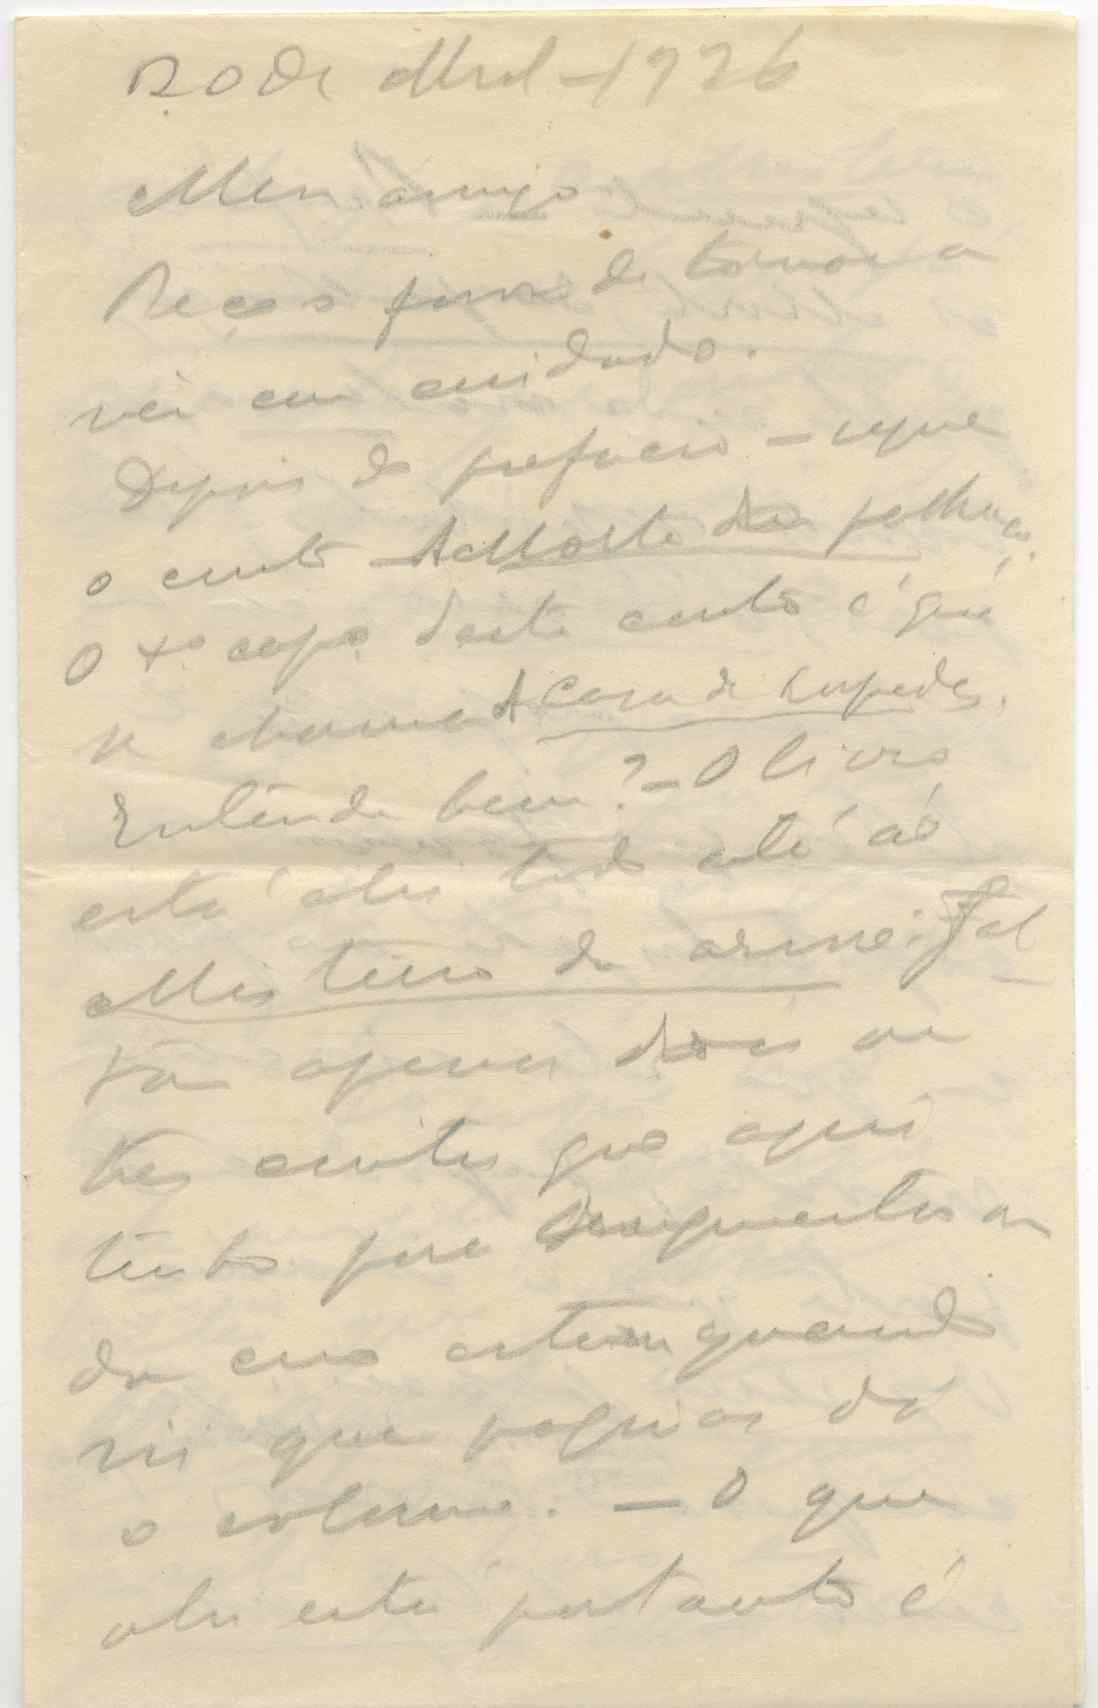 20 de Abril - 1926
Meu amigo
Peço o favor de tornar a
ver com cuidado.
Depois do prefacio - segue
o conto A Morte do palhaço.
O 1º capº deste conto é que
se chama A Casa de hospedes.
Entende bem? - O livro
está ahi todo até ao
Misterio da arvore. Fal
tão apenas dois ou
tres contos que aqui
tenho para
da cá quando
vir que paginas dá
o volume. - O que
ahi está portanto é